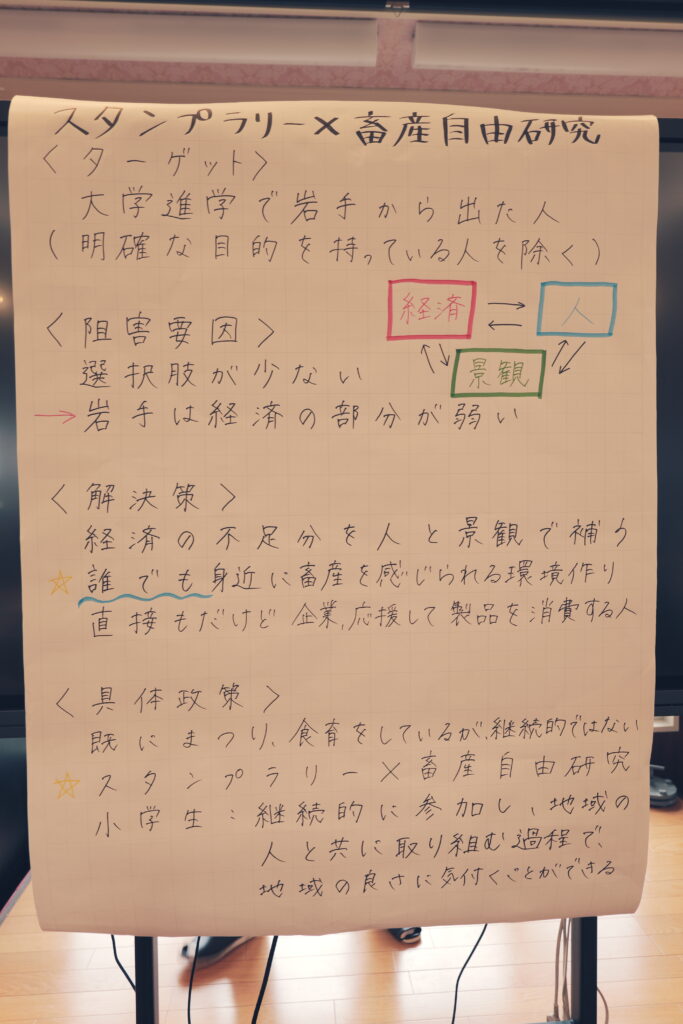 スタンプラリー×畜産自由研究
〈ターゲット〉
大学進学で岩手から出た人
(明確な目的を持っている人を除く)
経済 → ← 人
↑↓ 景観 ↗↙
〈阻害要因〉
選択肢が少ない
→岩手は経済の部分が弱い
〈解決策〉
経済の不足分を人と景観で補う
☆誰でも身近に畜産を感じられる環境作り
直接もだけど 企業、応援して製品を消費する人
〈具体政策〉
既にまつり、食育をしているが、継続的ではない
☆スタンプラリー×畜産自由研究
小学生:継続的に参加し、地域の
人と共に取り組む過程で、
地域の良さに気付くことができる